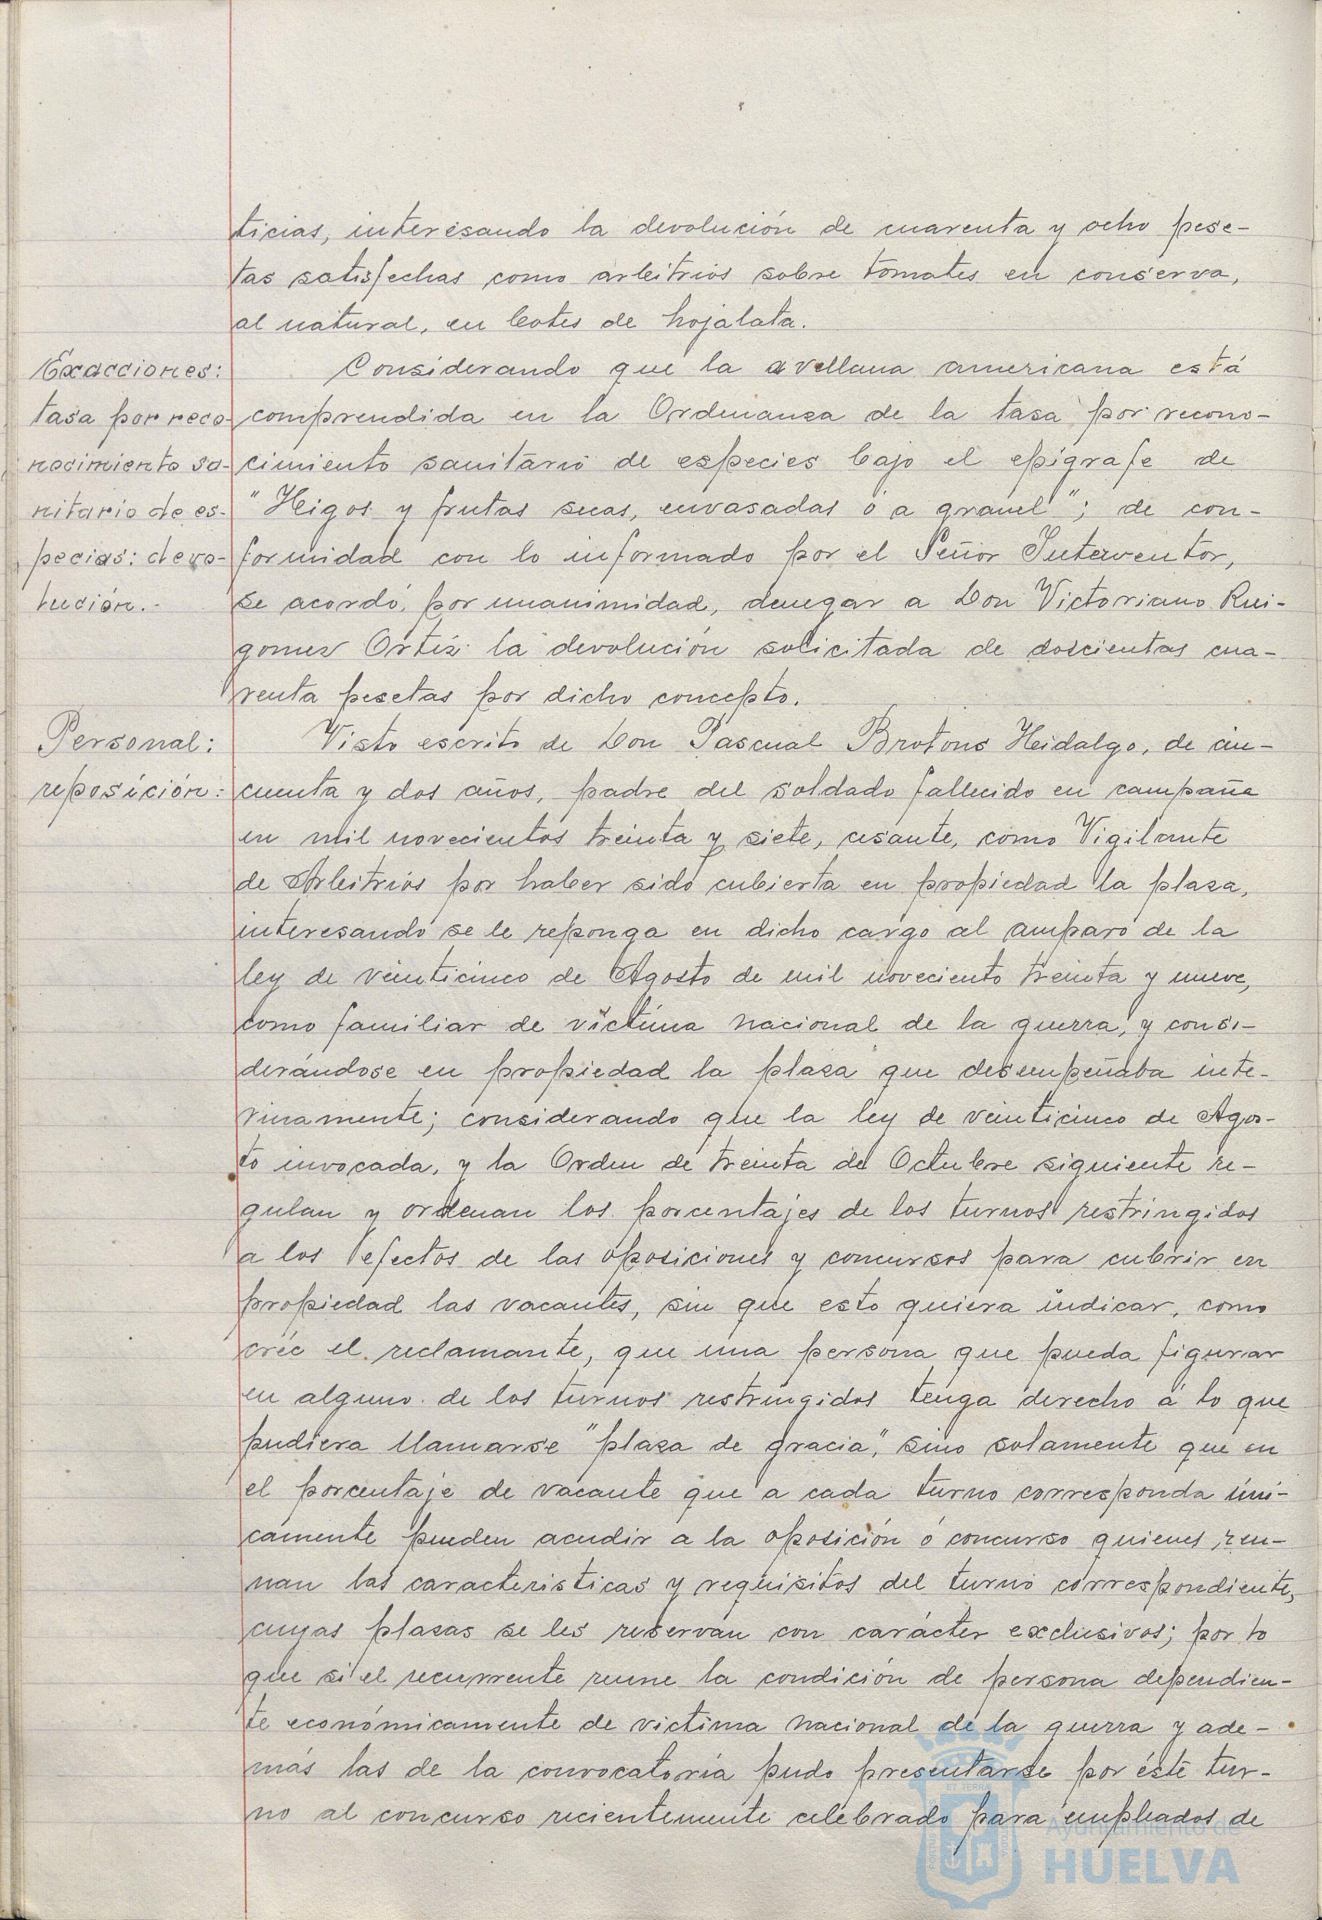 ticias, interesando la devolución de cuarenta y ocho pese-
tas satisfechas como arbitrios sobre tomates en conserva,
al natural, en botes de hojalata.
Exacciones:
tasa por reco-
nocimiento sa-
nitario de es-
pecies: devo-
lución.-
Considerando que la avellana americana está
comprendida en la Ordenanza de la tasa por recono-
cimiento sanitario de especies bajo el epígrafe de
"Higos y frutas secas, envasadas ó a granel"; de con-
formidad con lo informado por el Señor Interventor,
se acordó, por unanimidad, denegar a Don Victoriano Rui-
gomez Ortiz la devolución solicitada de doscientas cua-
renta pesetas por dicho concepto.
Personal:
reposición:
Visto escrito de Don Pascual Brotons Hidalgo, de cin-
cuenta y dos años, padre del soldado fallecido en campaña
en mil novecientos treinta y siete, cesante, como Vigilante
de Arbitrios por haber sido cubierta en propiedad la plaza,
interesando se le reponga en dicho cargo al amparo de la
ley de veinticinco de Agosto de mil noveciento treinta y nueve,
como familiar de víctima nacional de la guerra, y consi-
derándose en propiedad la plaza que desempeñaba inte-
rinamente; considerando que la ley de veinticinco de Agos-
to invocada, y la Orden de treinta de Octubre siguiente re-
gulan y ordenan los porcentajes de los turnos restringidos
a los efectos de las oposiciones y concursos para cubrir en
propiedad las vacantes, sin que esto quiera indicar, como
crée el reclamante, que una persona que pueda figurar
en alguno de los turnos restringidos tenga derecho á lo que
pudiera llamarse "plaza de gracia", sino solamente que en
el porcentaje de vacante que a cada turno corresponda úni-
camente pueden acudir a la oposición ó concurso quienes reu-
nan las caracteristicas y requisitos del turno correspondiente,
cuyas plazas se les reservan con carácter exclusivos; por lo
que si el recurrente reune la condición de persona dependien-
te económicamente de victima nacional de la guerra y ade-
más las de la convocatoria pudo presentarse por éste tur-
no al concurso recientemente celebrado para empleados de
Ayuntamiento de
HUELVA